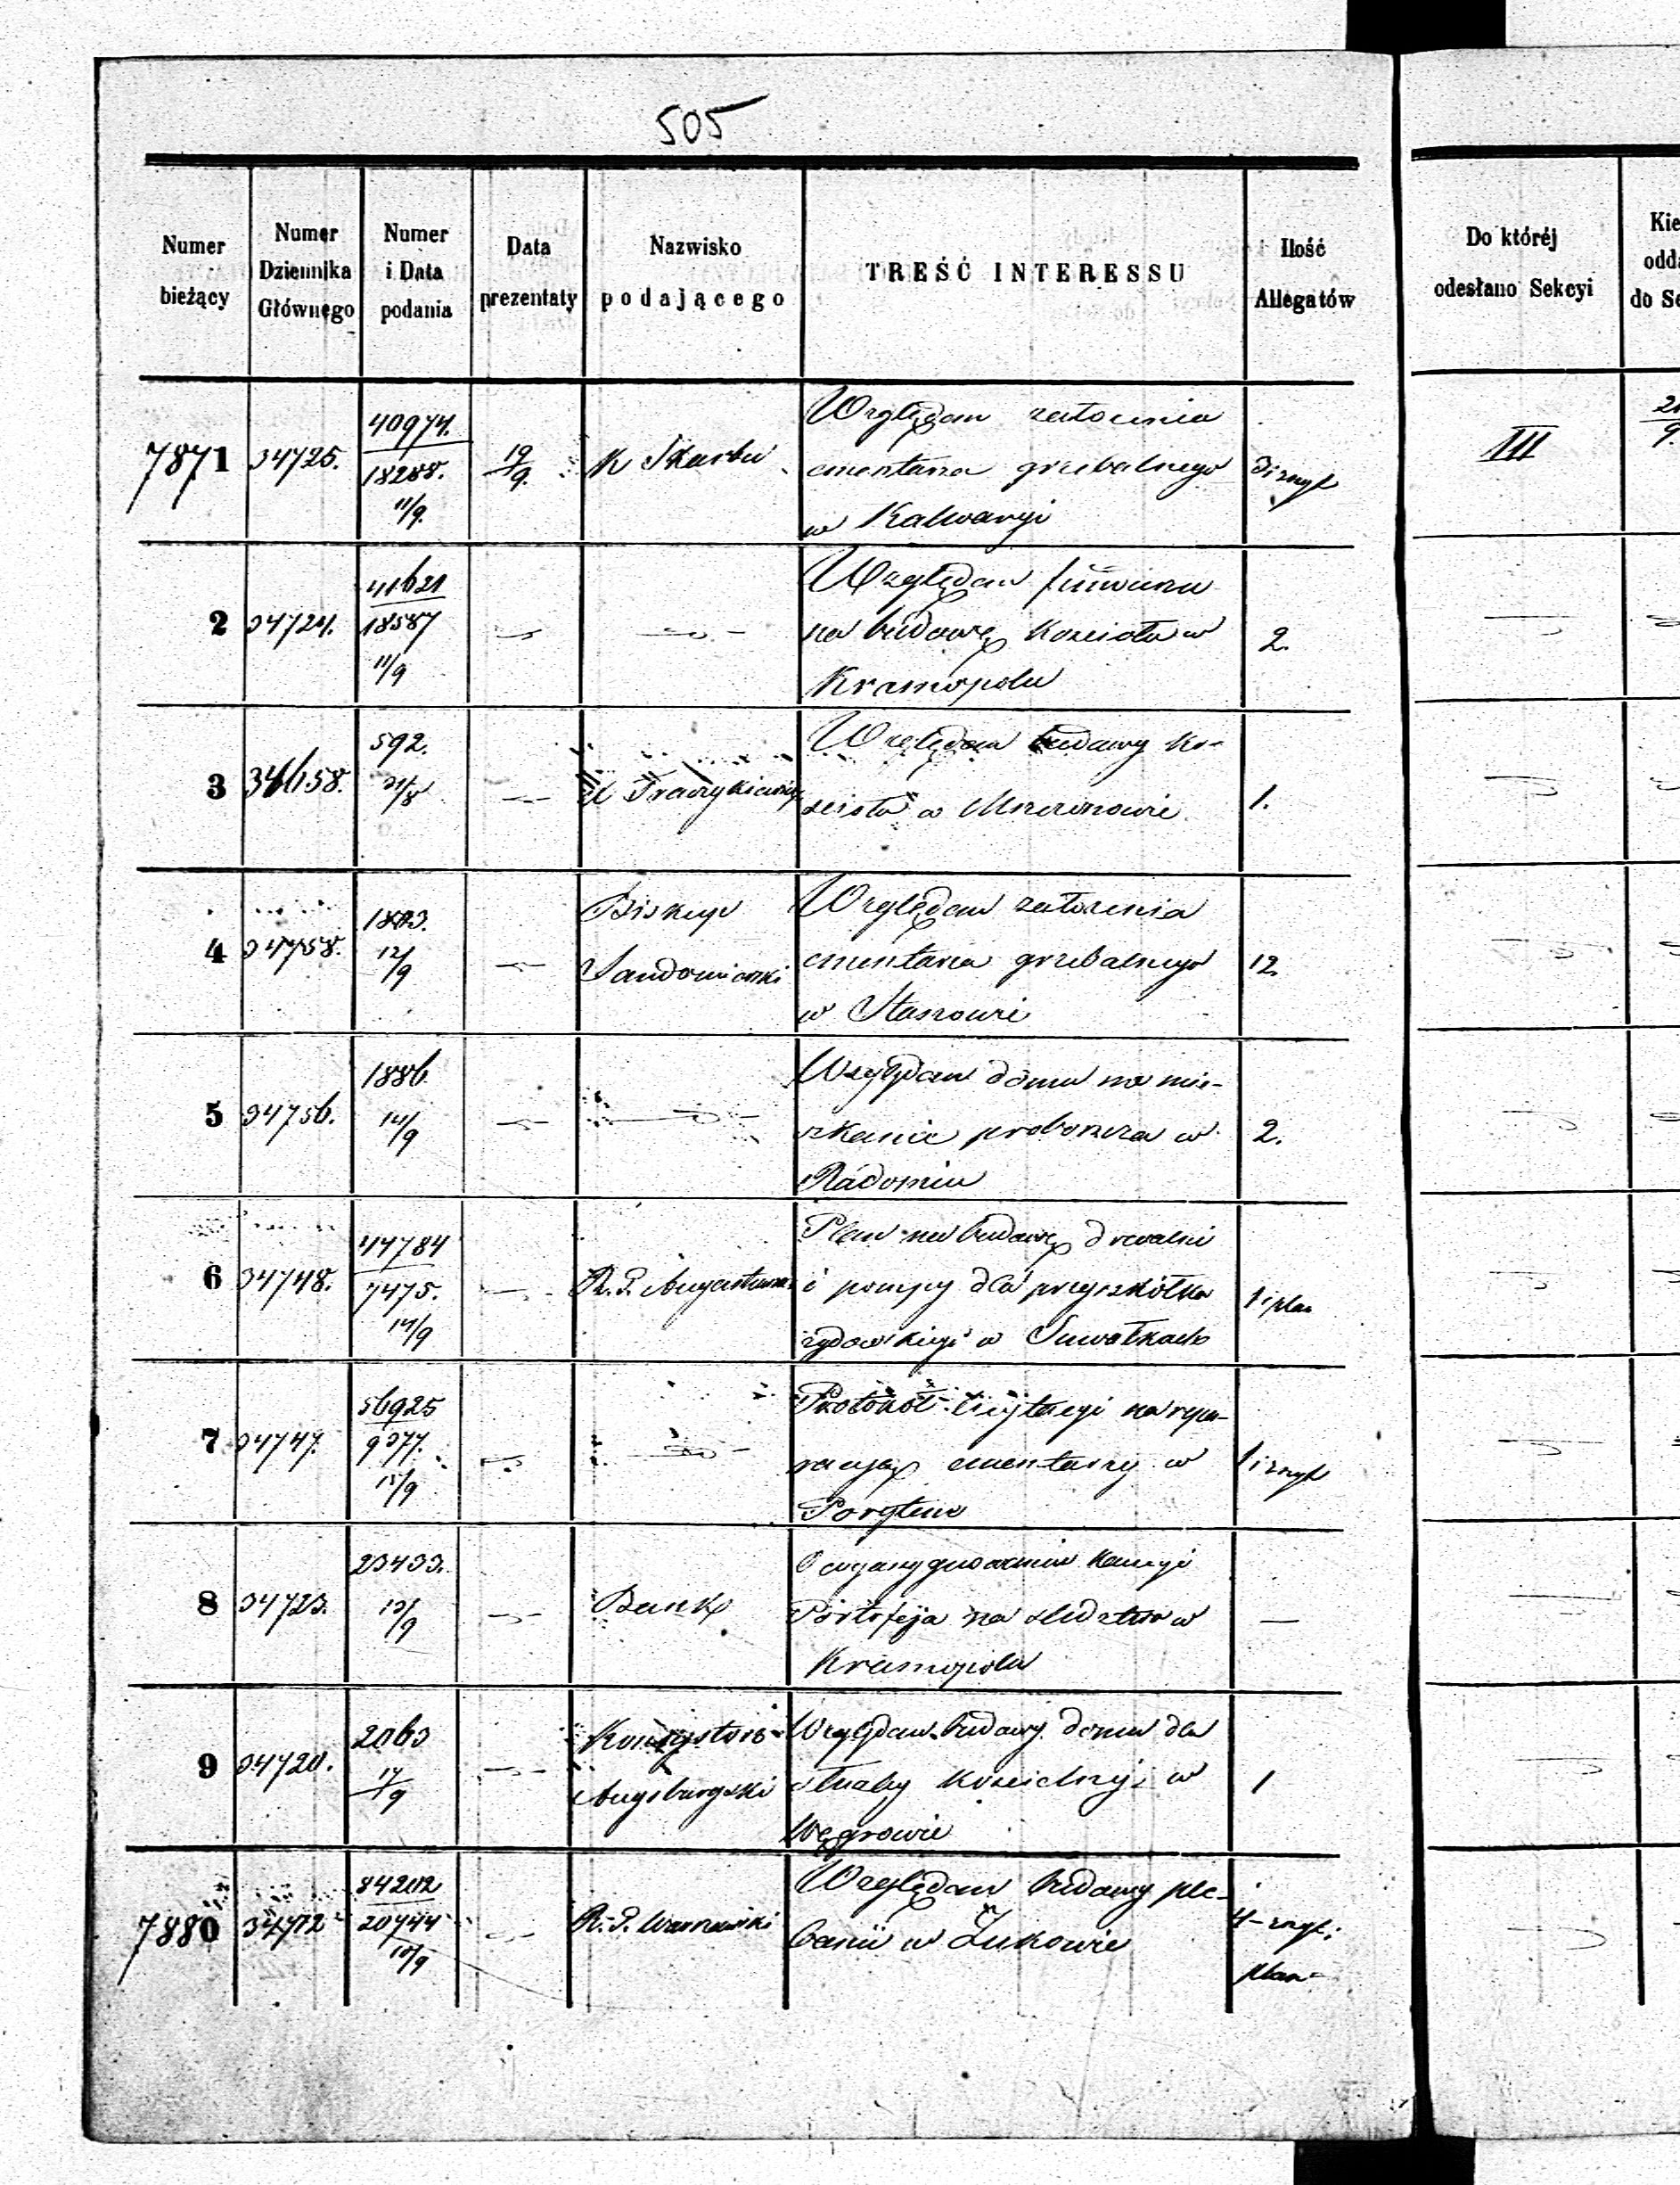 505
Numer bieżący
Numer Dziennika Głównego
Numer i Data podania
Data prezentaty
Nazwisko podającego
TREŚĆ INTERESSU
Ilość Allegatów
Do któréj odesłano Sekcyi
7871 34725. 40974. 18288. 11/9. 19/9. K Skarbu
Względem założenia
cmentarza grzebalnego
w Kalwaryi
III
2 34724. 41621 18587 11/9
Względem funduszu
na budowę kościoła w
Krasnopolu
2.
3 34658. 592. 31/8
Względem budowy ko-
ścioła w Mszczonowie
1.
4 34758. 12/9 Biskup
Sandomierski
Względem założenia
cmentarza grzebalnego
w Staszowie
12
5 34756. 1886. 14/9
Względem domu na mie-
szkanie proboszcza w
Radomiu
2.
6 34748. 44784 7475. 14/9 R. G. Augustowski
Plan na budowę drwalni
i pompy dla przyszkółka
żydowskiego w Suwałkach
1 i plan
7 34747. 56925 9377. 15/9
Protokół licytacyi na repa-
racyą cmentarzy w
Porytem
8 34723. 23433. 13/9 Bank
kaucyi
na śledztwo w
Krasnopolu
—
9 34720. 2063 17/9 Konsystorz
Augsburgski
Względem budowy domu dla
służby kościelnej w
Węgrowie
1
7880 34712 84202 20744 10/9 R. G. Warszawski
Względem budowy ple-
banii w Żukowie
plan